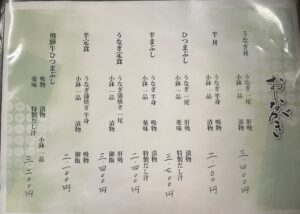 おしながき
うなぎ丼
うなぎ一尾 肝吸
小鉢一品 漬物
二、四〇〇円
半丼
うなぎ半身 吸物
小鉢一品 漬物
二、一〇〇円
ひつまぶし
うなぎ一尾 肝吸
小鉢一品 漬物
薬味 特製だし汁
二、七〇〇円
半まぶし
うなぎ半身 吸物
小鉢一品 漬物
薬味 特製だし汁
二、四〇〇円
うなぎ定食
うなぎ蒲焼き一尾 肝吸
小鉢一品 漬物 御飯
二、四〇〇円
半定食
うなぎ蒲焼き半身 吸物
小鉢一品 漬物 御飯
二、一〇〇円
飛騨牛ひつまぶし
吸物 小鉢一品 漬物
薬味 特製だし汁
三、二〇〇円